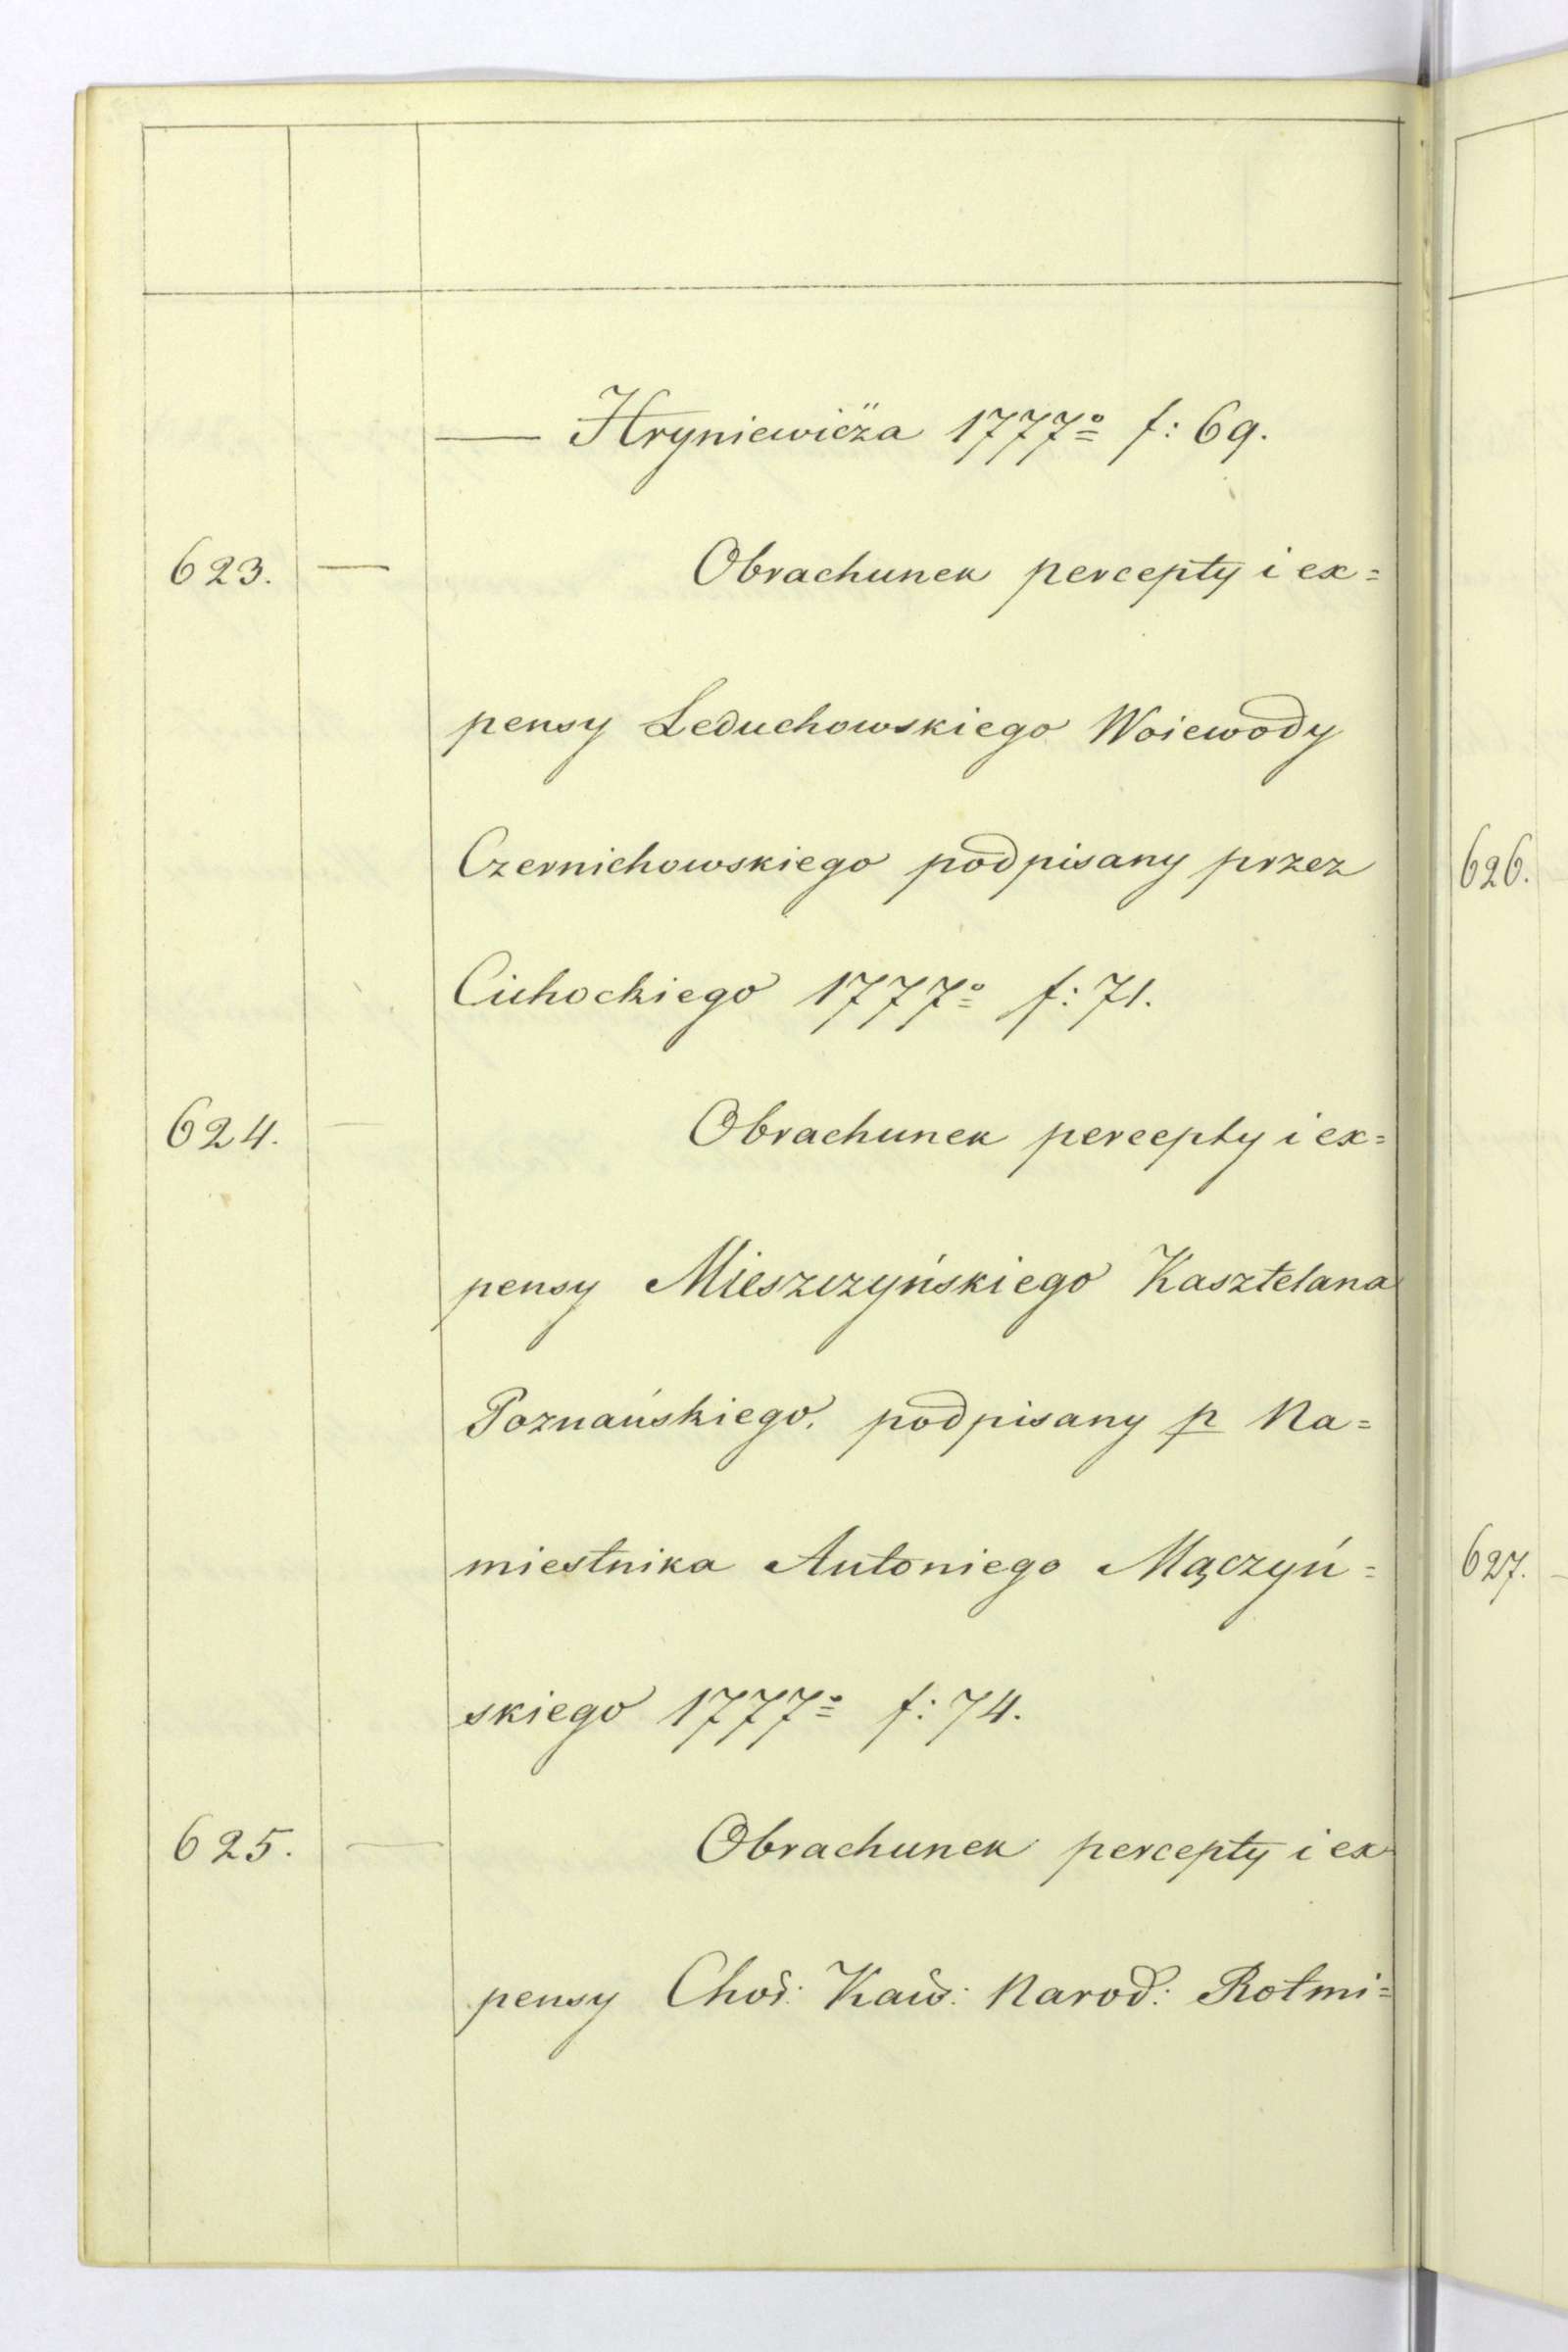 — Hryniewicza 1777º f: 69.
623. — Obrachunek percepty i ex=
pensy Leduchowskiego Woiewody
Czernichowskiego podpisany przez
Cichockiego 1777º f: 71.
624. — Obrachunek percepty i ex=
pensy Mieszczyńskiego Kasztelana
Poznańskiego. podpisany p Na=
miestnika Antoniego Mączyń=
skiego 1777º f: 74.
625. — Obrachunek percepty i ex
pensy Cho: Kaw: Narod: Rotmi=
626.
627.